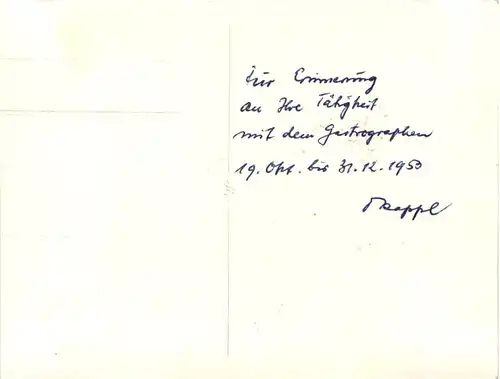 Zur Erinnerung
an Ihre Tätigkeit
mit dem Gastrographen
19. Okt. bis 31.12.1953